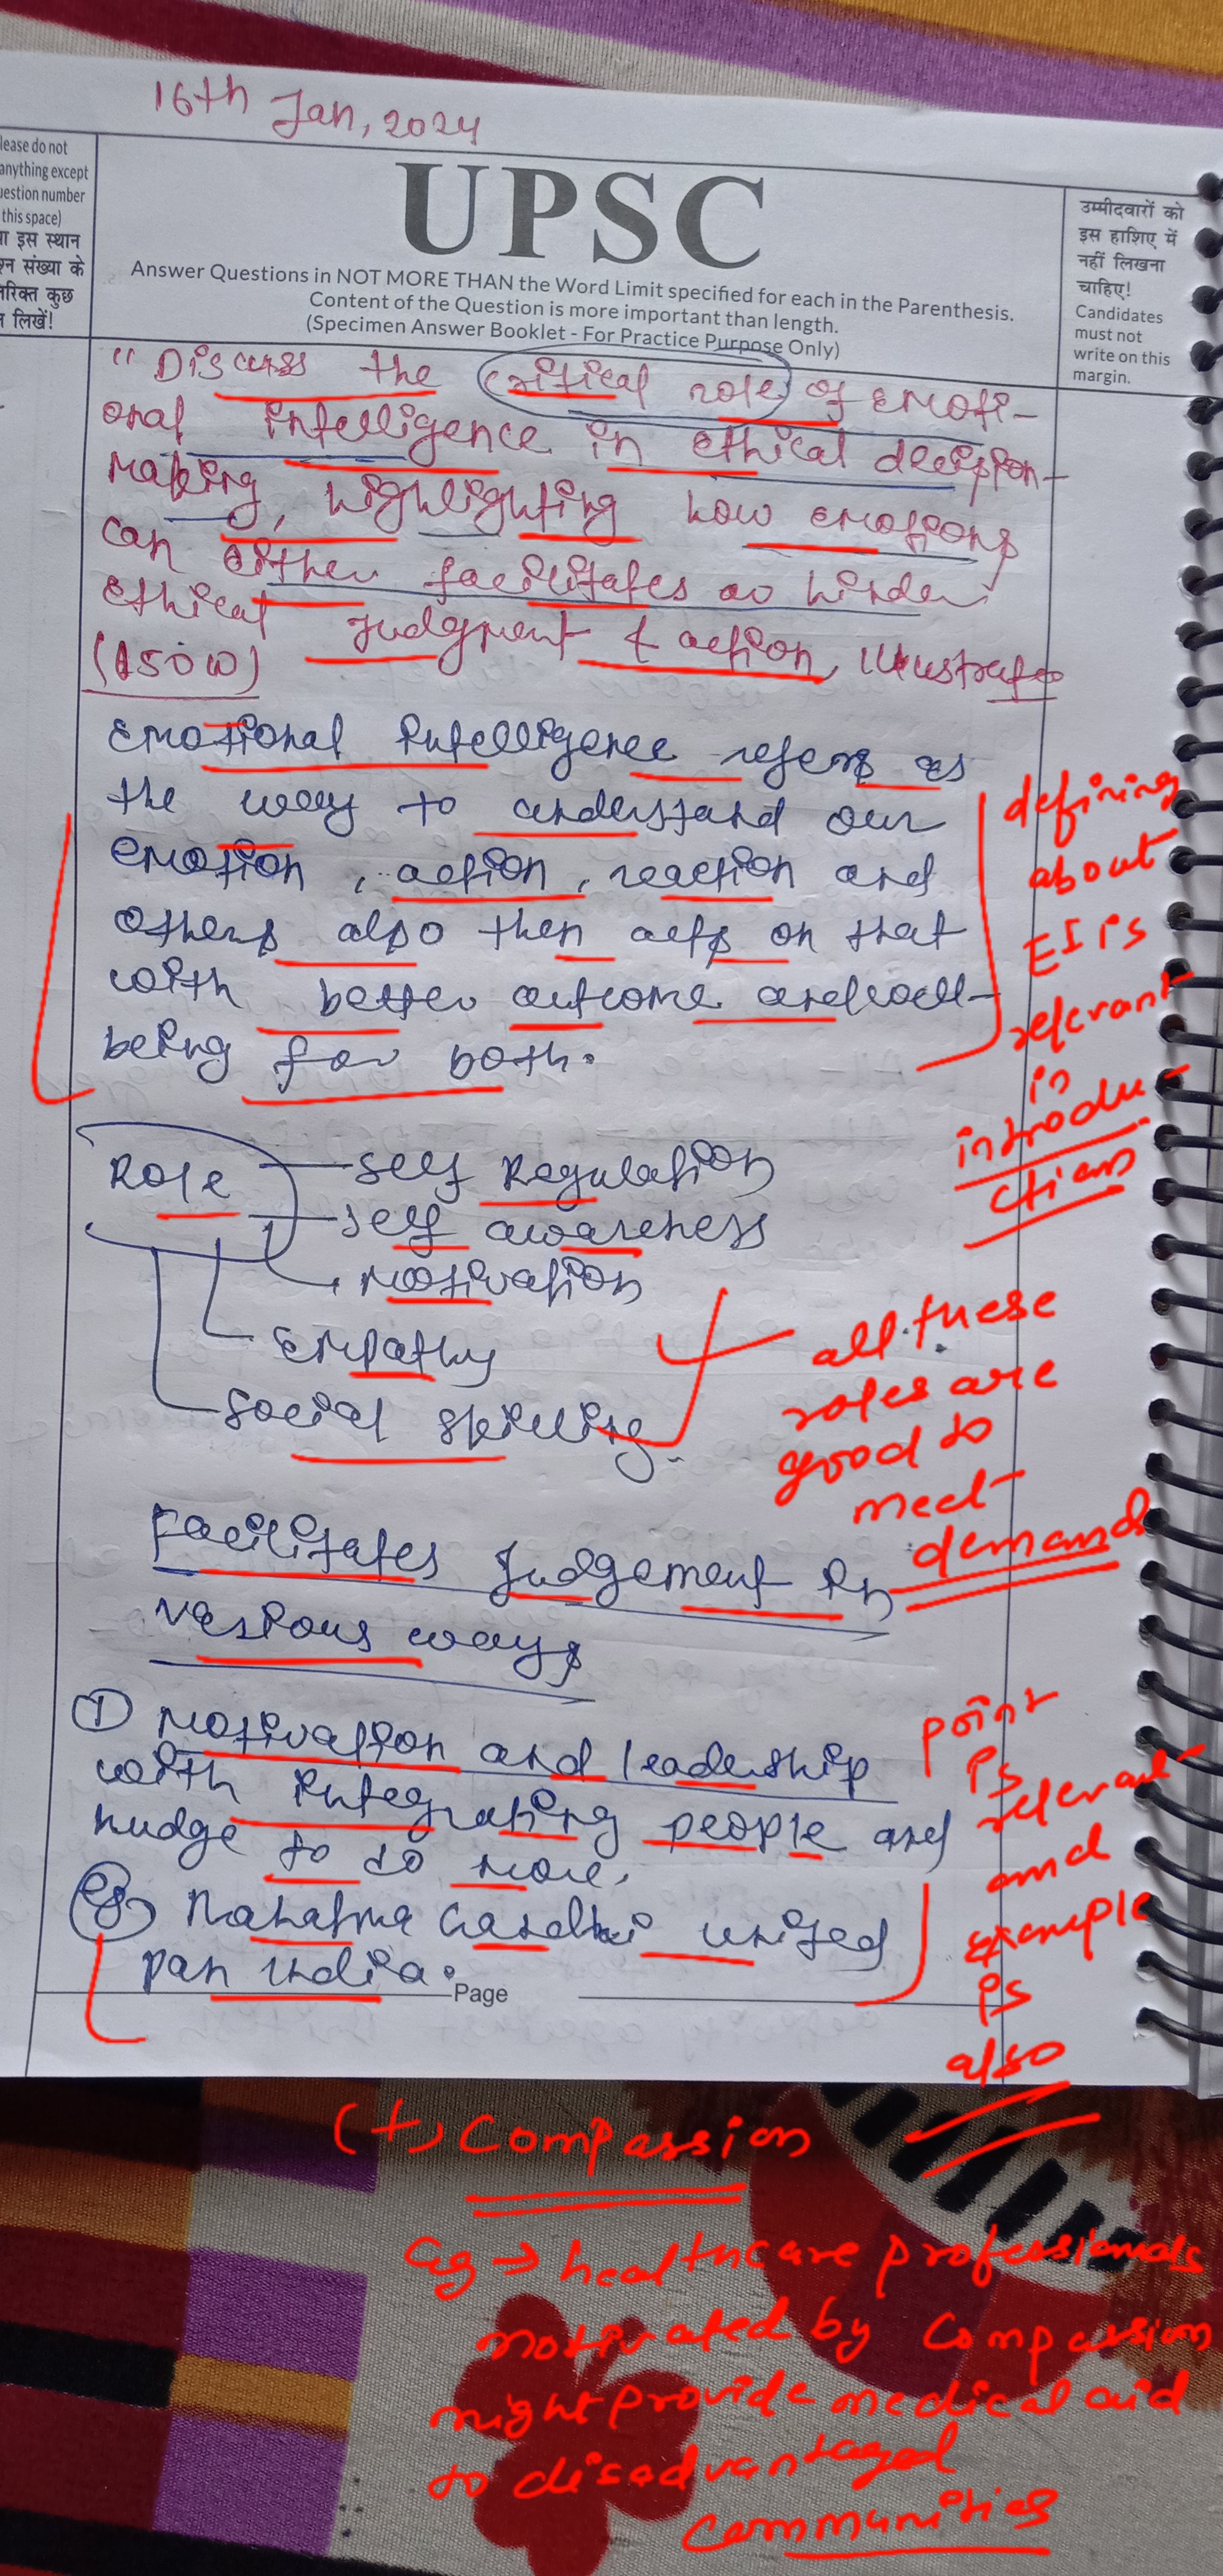 16th Jan, 2024
lease do not
anything except
uestion number
this space)
ा इस स्थान
न संख्या के
रिक्त कुछ
लिखें!
UPSC
Answer Questions in NOT MORE THAN the Word Limit specified for each in the Parenthesis.
Content of the Question is more important than length.
(Specimen Answer Booklet - For Practice Purpose Only)
उम्मीदवारों को
इस हाशिए में
नहीं लिखना
चाहिए!
Candidates
must not
write on this
margin.
"Discuss the critical role of emoti-
onal intelligence in ethical decision-
making, highlighting how emotions
can either facilitates or hinder
ethical judgment & action, illustrate
(150W)
Emotional intelligence refers as
the way to understand our
emotion, action, reaction and
others also then acts on that
with better outcome and well-
being for both.
defining
about
EI is
relevant
in
introdu-
ction
Role
self Regulation
self awareness
motivation
Empathy
social skilling.
all these
roles are
good to
meet
demand
Facilitates Judgement in
various ways
① Motivation and leadership
with integrating people and
nudge to do more.
eg Mahatma Gandhi united
pan india.
point
is
relevant
and
example
is
also
Page
(+) Compassion
eg → healthcare professionals
motivated by compassion
might provide medical aid
to disadvantaged
communities